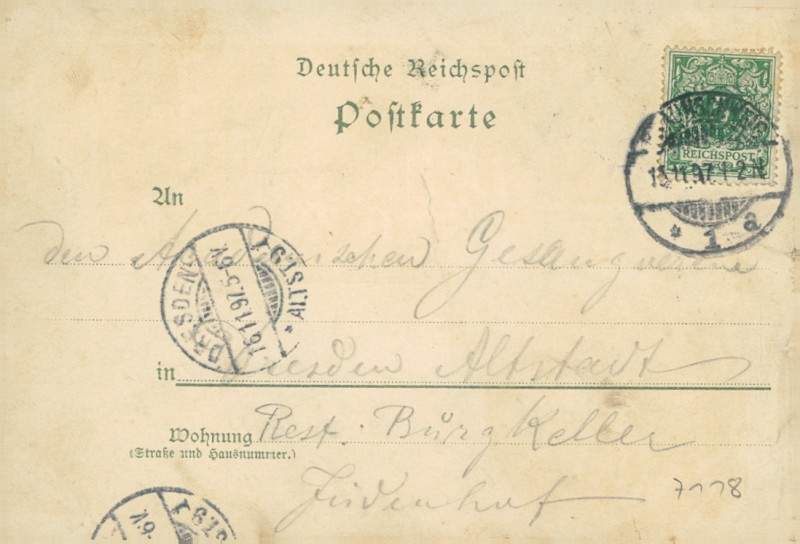 Deutsche Reichspost
Postkarte
REICHSPOST
1 a
An
den Akademischen Gesangverein
DRESDEN
16.11.97.5-6V.
in Dresden Altstadt
Wohnung Rest. Burgkeller
(Straße und Hausnummer.)
Jüdenhof
7118